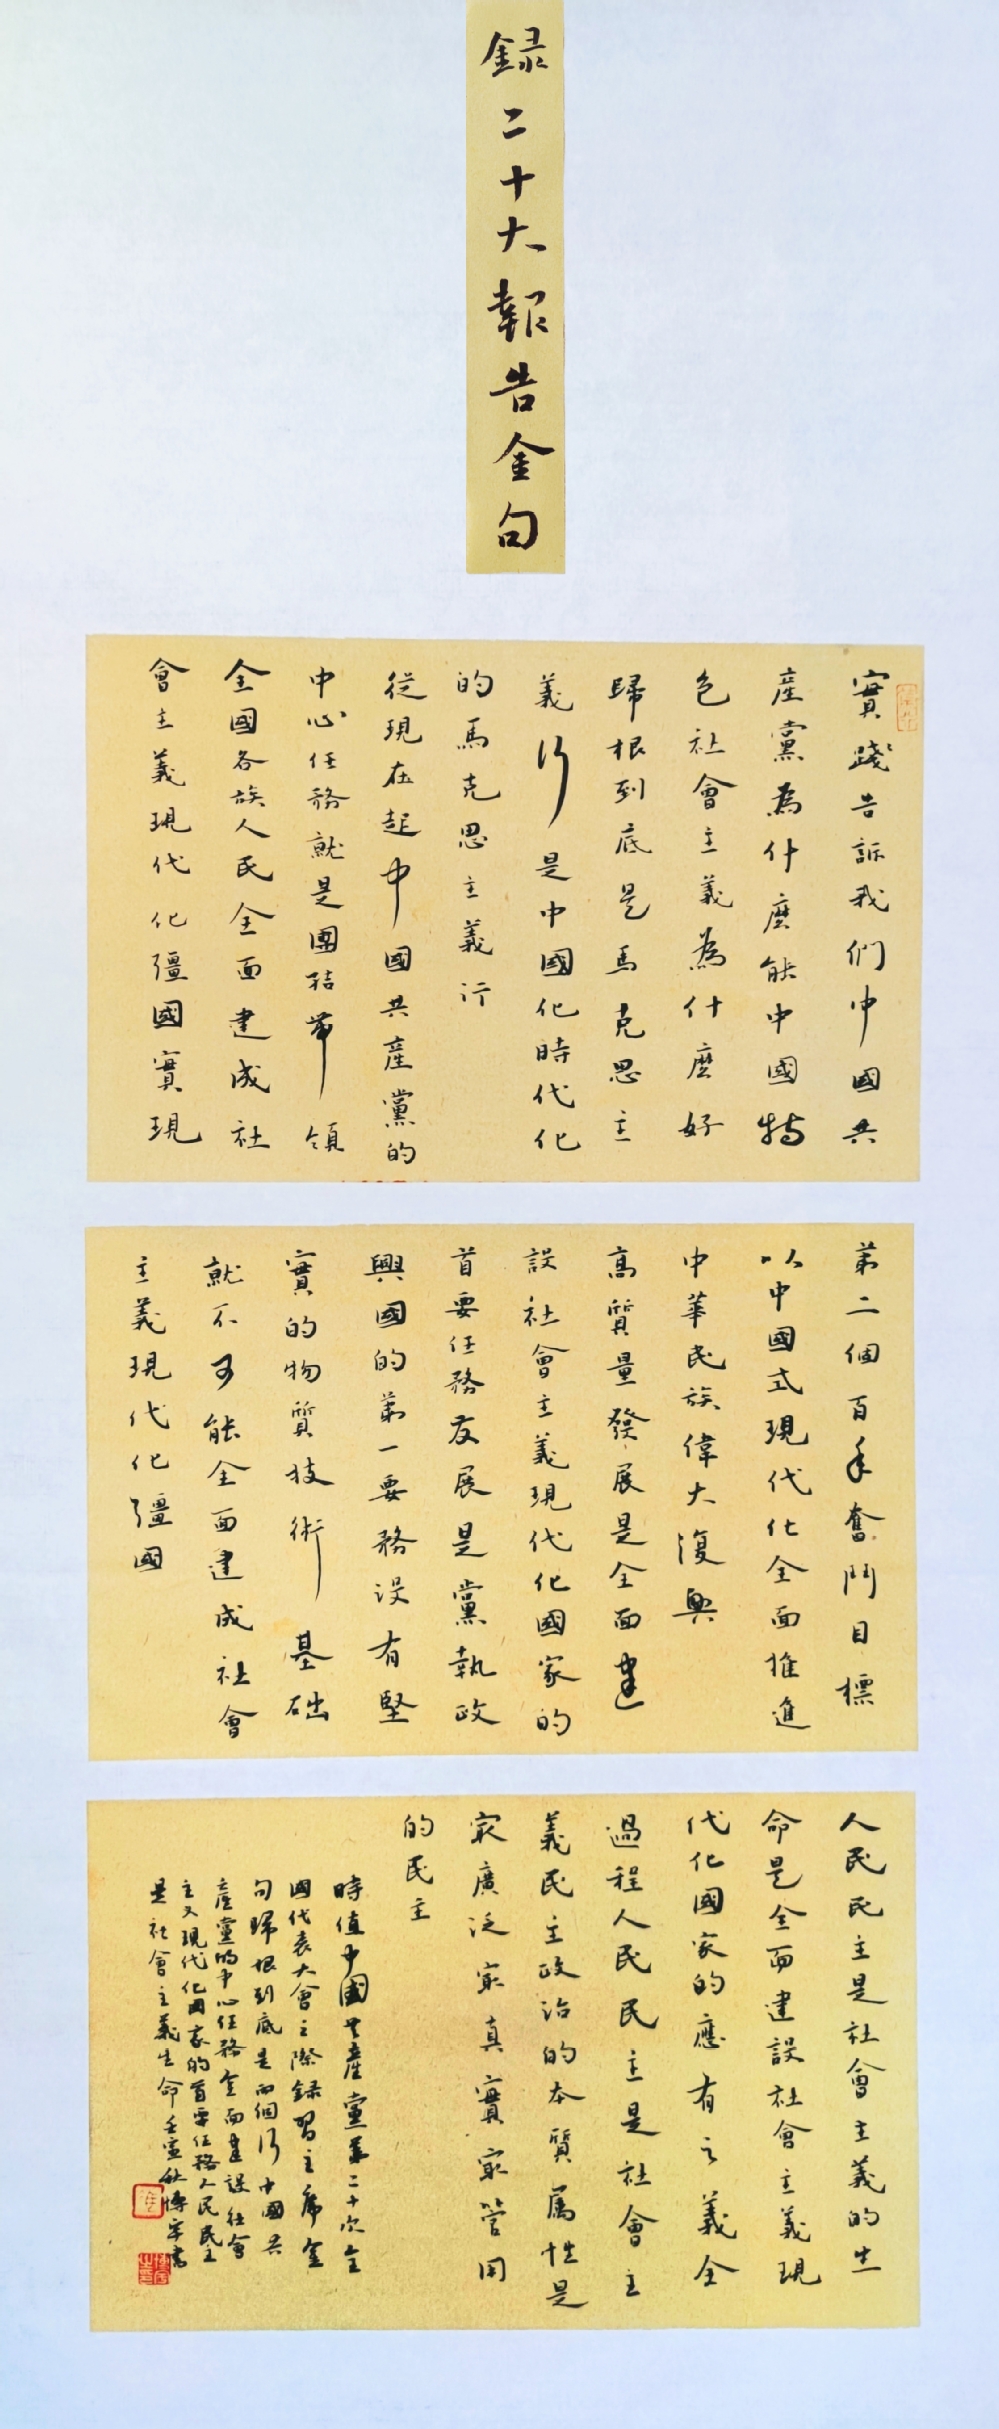 録二十大報告金句
實踐告訴我們中國共
產黨為什麼能中國特
色社會主義為什麼好
歸根到底是馬克思主
義行是中國化時代化
的馬克思主義行
從現在起中國共產黨的
中心任務就是團結帶領
全國各族人民全面建成社
會主義現代化彊國實現
第二個百年奮鬥目標
以中國式現代化全面推進
中華民族偉大復興
高質量發展是全面建
設社會主義現代化國家的
首要任務發展是黨執政
興國的第一要務沒有堅
實的物質技術基础
就不可能全面建成社會
主義現代化彊國
人民民主是社會主義的生
命是全面建設社會主義現
代化國家的應有之義全
過程人民民主是社會主
義民主政治的本質属性是
最廣泛最真實最管用
的民主
時值中國共產黨第二十次全
國代表大會之際録習主席金
句歸根到底是兩個行中國共
產黨的中心任務全面建設社會
主义現代化國家的首要任務人民民主
是社會主義生命壬寅秋博宇書